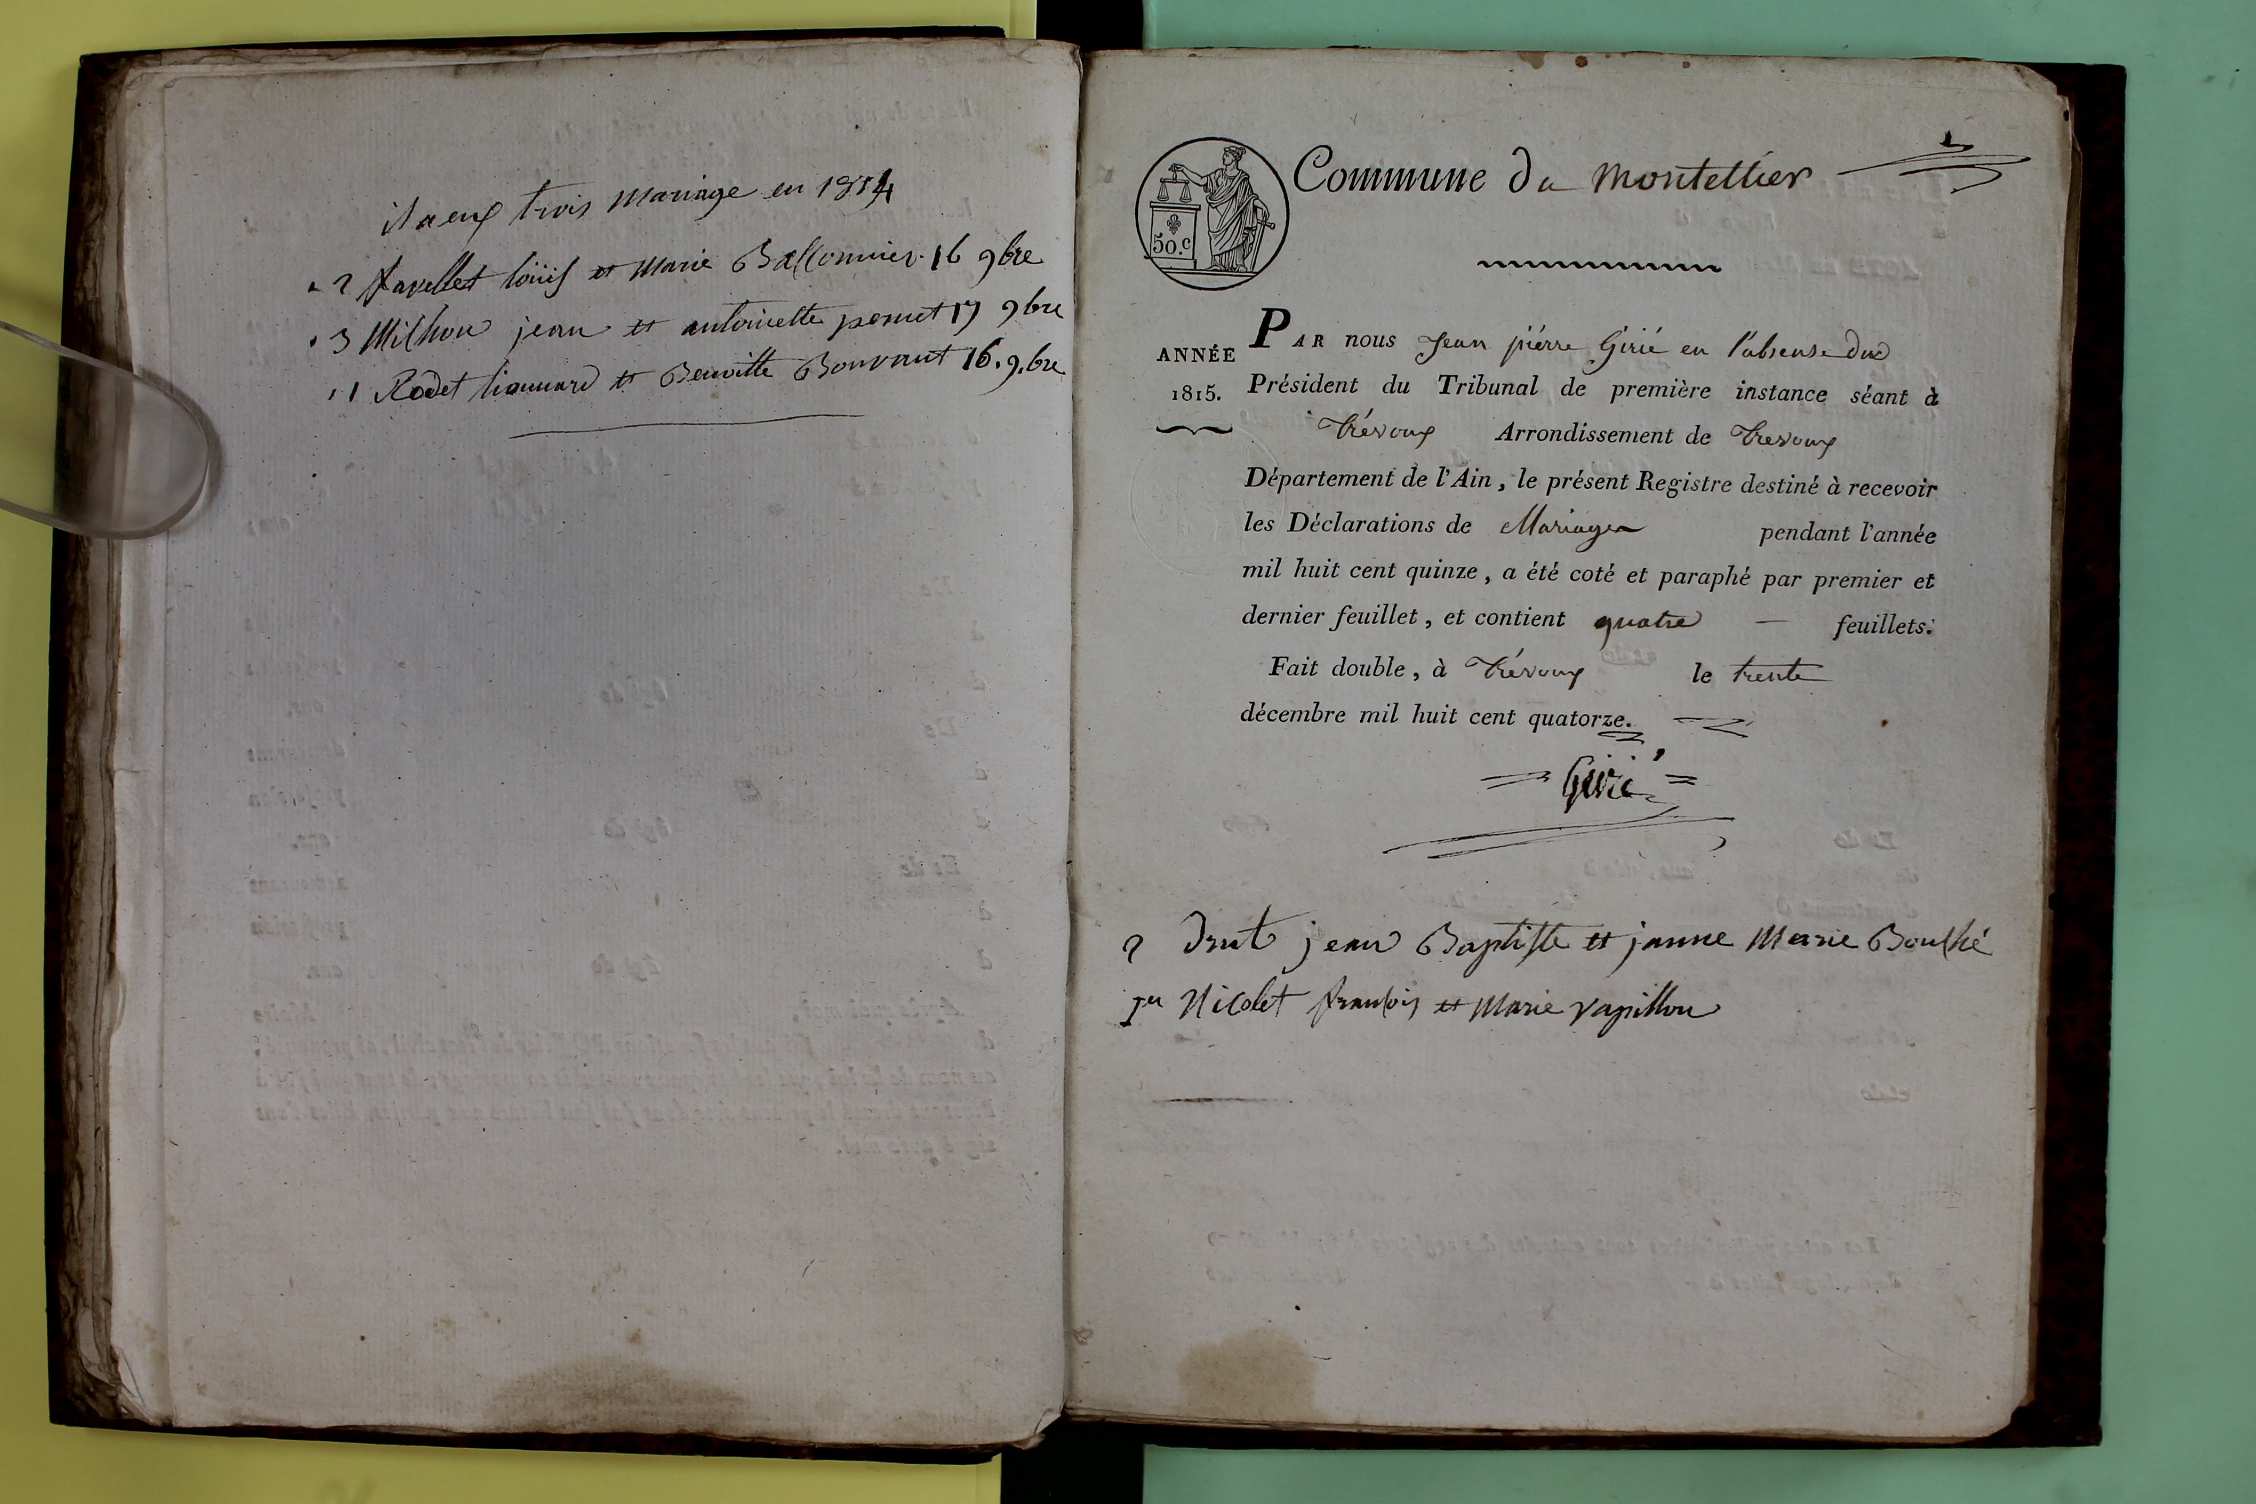 il a eux trois mariage en 1814
2 favellet loüis et marie Balconnier. 16 9bre
3 Milhon jean et antoinette pernet 17 9bre
1 Rodet lionnard et Benoitte Bouvant 16. 9.bre
Commune du montellier
50.c
PAR nous Jean pierre Girié en l'absense du
ANNÉE
1815.
Président du Tribunal de première instance séant à
Trévoux Arrondissement de Trevoux
Département de l'Ain, le présent Registre destiné à recevoir
les Déclarations de Mariages pendant l'année
mil huit cent quinze, a été coté et paraphé par premier et
dernier feuillet, et contient quatre — feuillets.
Fait double, à Trévoux le trente
décembre mil huit cent quatorze.
Girié
2 Drut jean Baptiste et janne Marie Bouché
1er Nicolet francois et Marie papillon